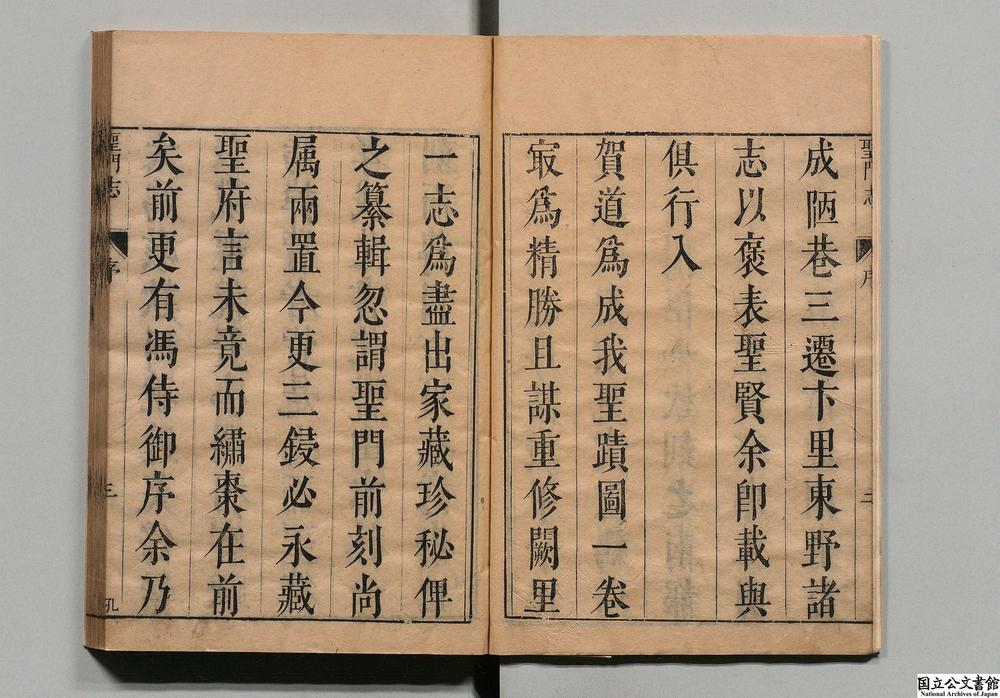 聖門志 序 二
成陋巷三遷卞里東野諸
志以褒表聖賢余卽載與
俱行入
賀道爲成我聖蹟圖一卷
㝡爲精勝且謀重修闕里
一志爲盡出家藏珍秘俾
之纂輯忽謂聖門前刻尚
属兩置今更三鋟必永藏
聖府言未竟而繡棗在前
矣前更有馮侍御序余乃
聖門志 序 三 孔
国立公文書館
National Archives of Japan